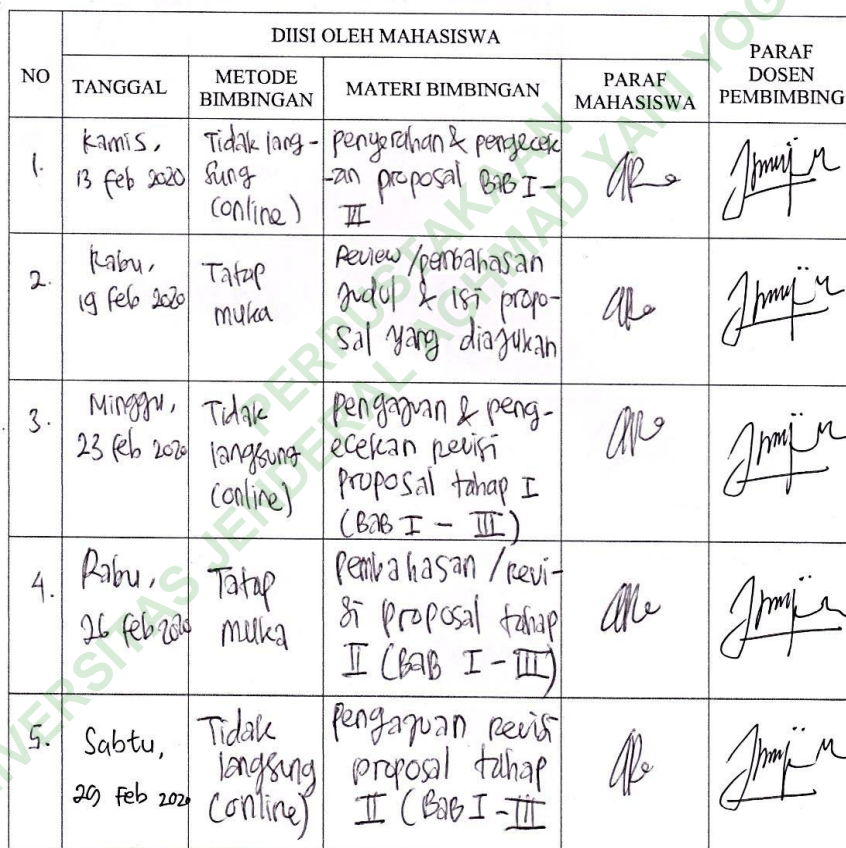 DIISI OLEH MAHASISWA
NO
TANGGAL
METODE
BIMBINGAN
MATERI BIMBINGAN
PARAF
MAHASISWA
PARAF
DOSEN
PEMBIMBING
1.
Kamis,
13 feb 2020
Tidak lang-
sung
(online)
penyerahan & pengecek
-an proposal BAB I -
III
2.
Rabu,
19 feb 2020
Tatap
muka
Review/pembahasan
judul & isi propo-
sal yang diajukan
3.
Minggu,
23 feb 2020
Tidak
langsung
(online)
pengajuan & peng-
ecekan revisi
proposal tahap I
(BAB I - III)
4.
Rabu,
26 feb 2020
Tatap
muka
pembahasan / revi-
si proposal tahap
II (BAB I - III)
5.
Sabtu,
29 Feb 2020
Tidak
langsung
(online)
pengajuan revisi
proposal tahap
II (BAB I - III
PERPUSTAKAAN
UNIVERSITAS JENDERAL ACHMAD YANI YOG